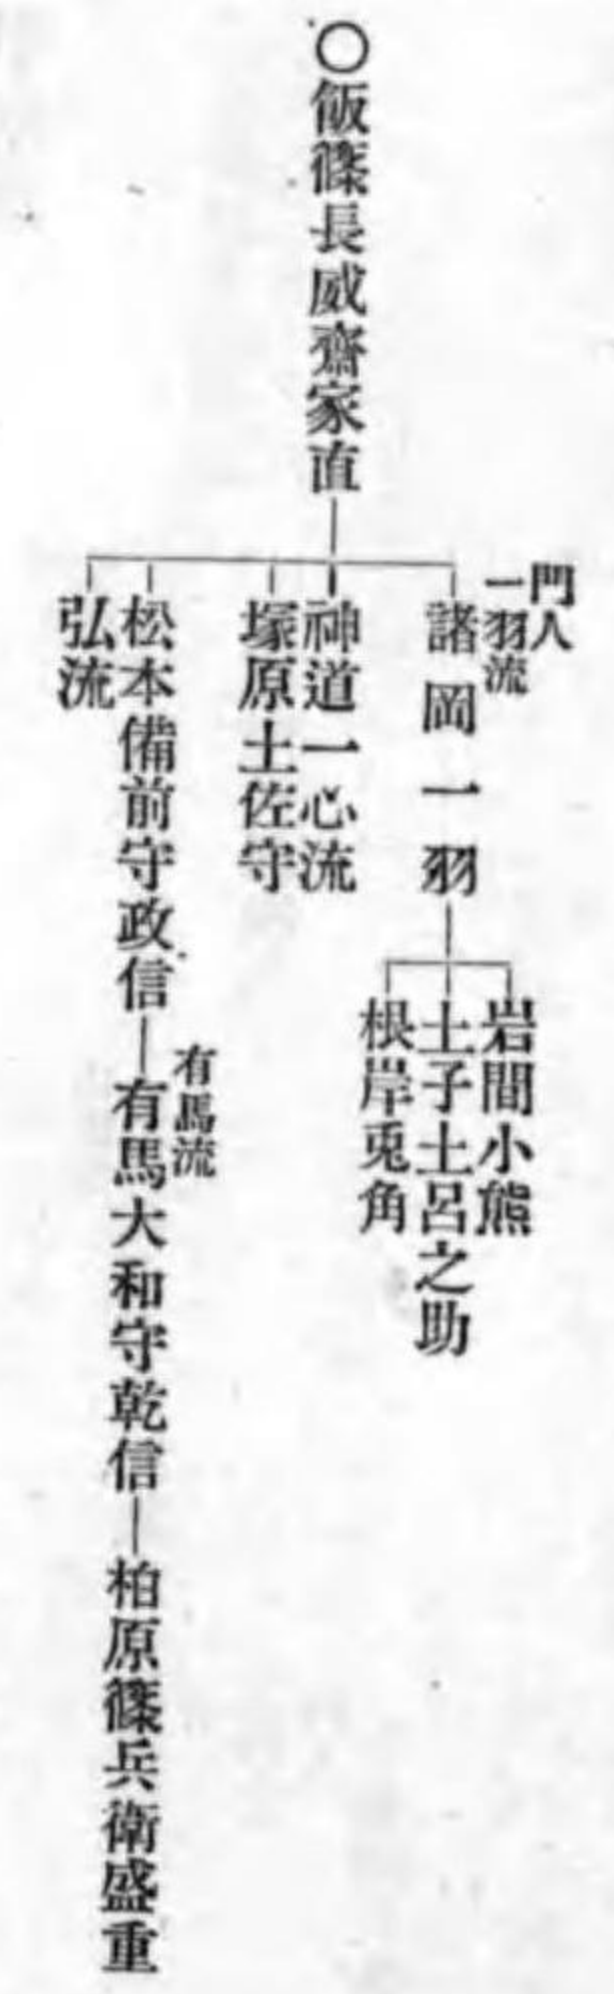 〇飯篠長威齋家直
門人
一羽流
諸岡一羽
岩間小熊
土子土呂之助
根岸兎角
神道一心流
塚原土佐守
松本備前守政信
有馬流
有馬大和守乾信
柏原篠兵衛盛重
弘流